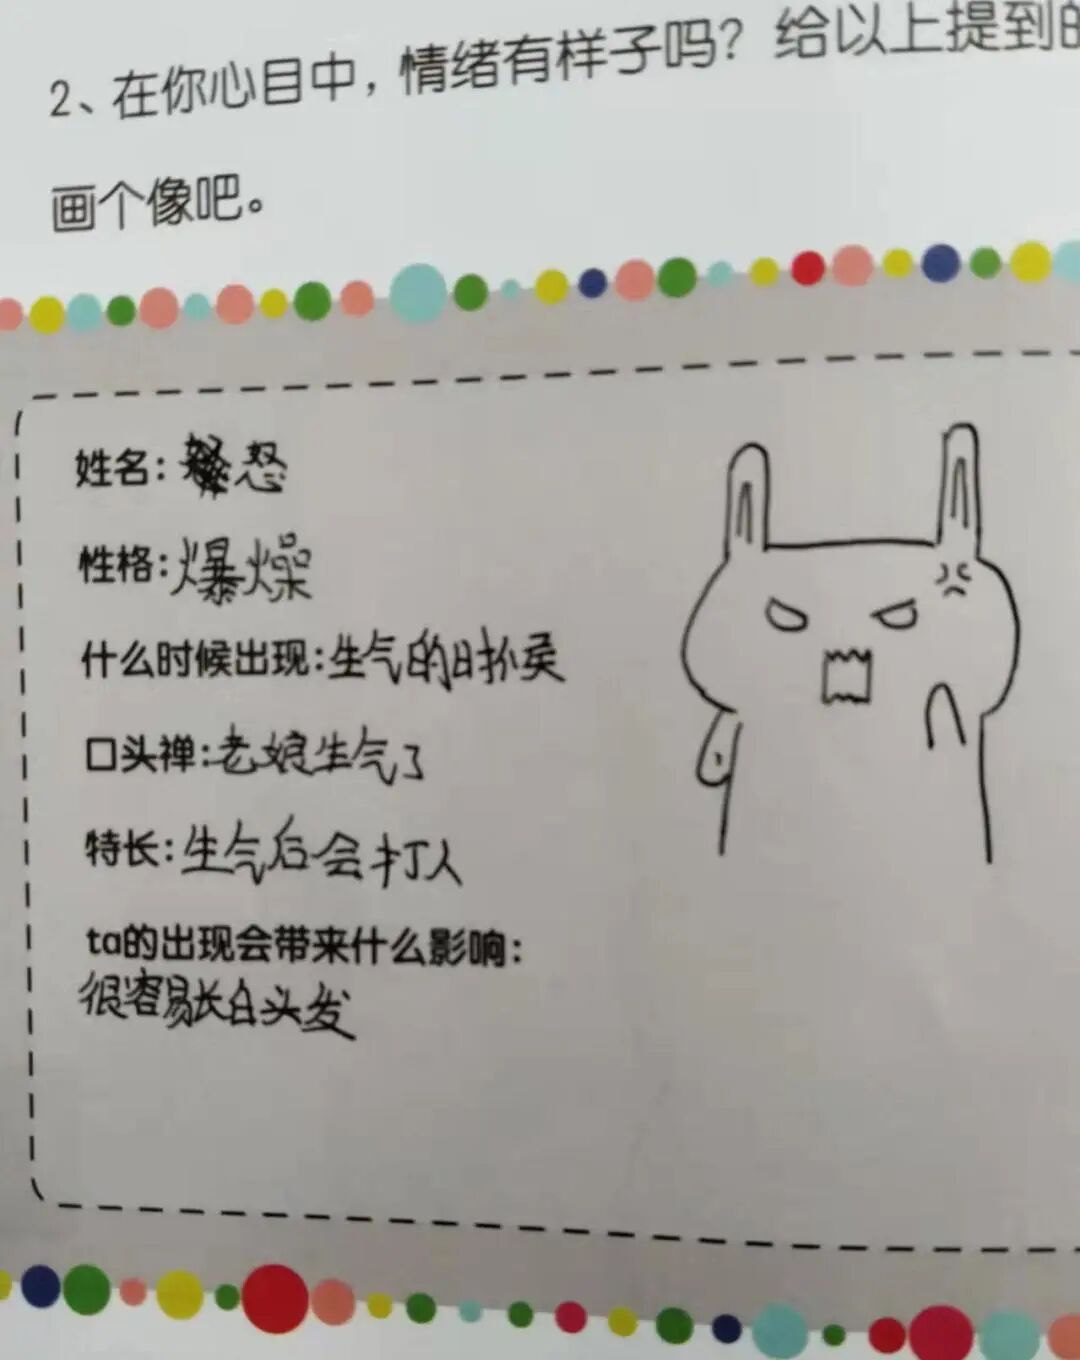 2、在你心目中，情绪有样子吗？给以上提到的
画个像吧。
姓名：怒
性格：爆燥
什么时候出现：生气的时候
口头禅：老娘生气了
特长：生气后会打人
ta的出现会带来什么影响：
很容易长白头发